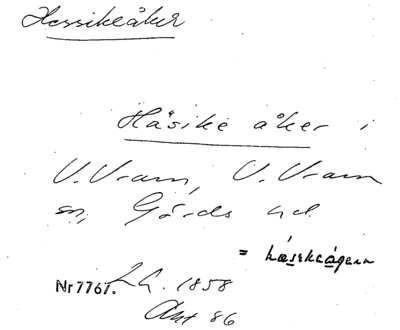 Hessikeåker
Håsike åker i
V. Vram, V. Vram
sn, Gärds hd.
= hæsekeågənn
Nr 7767. LA. 1858
Akt 86